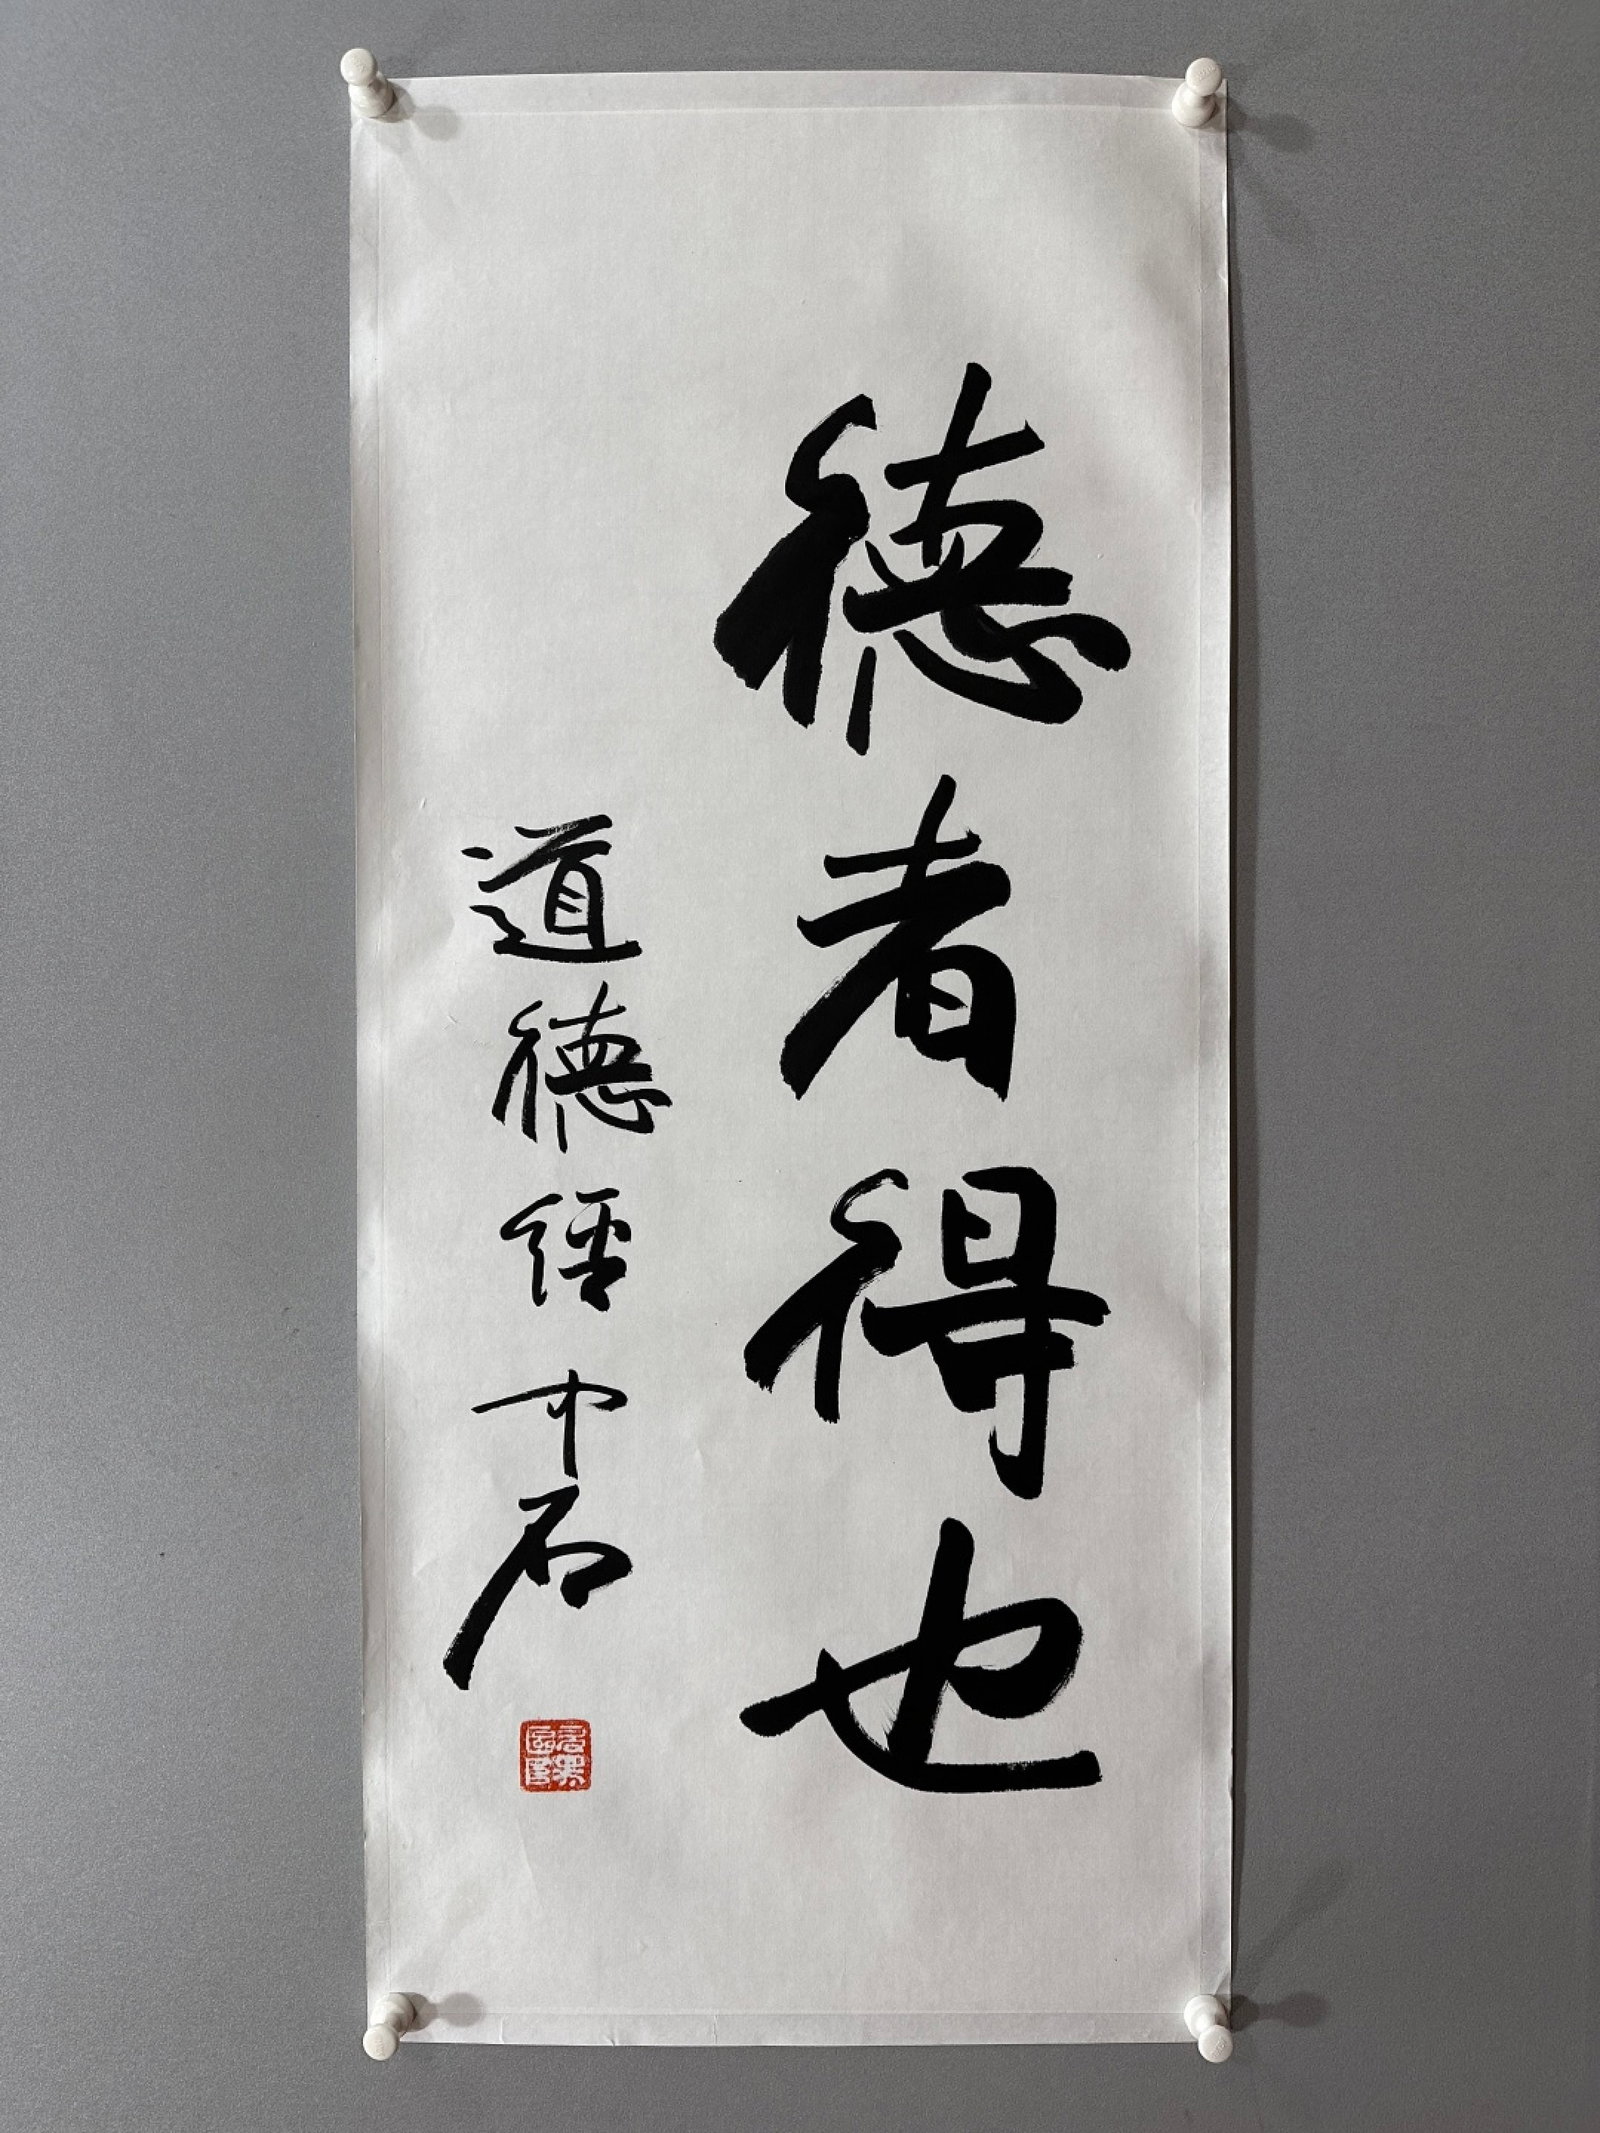 德者得也
道德経中石